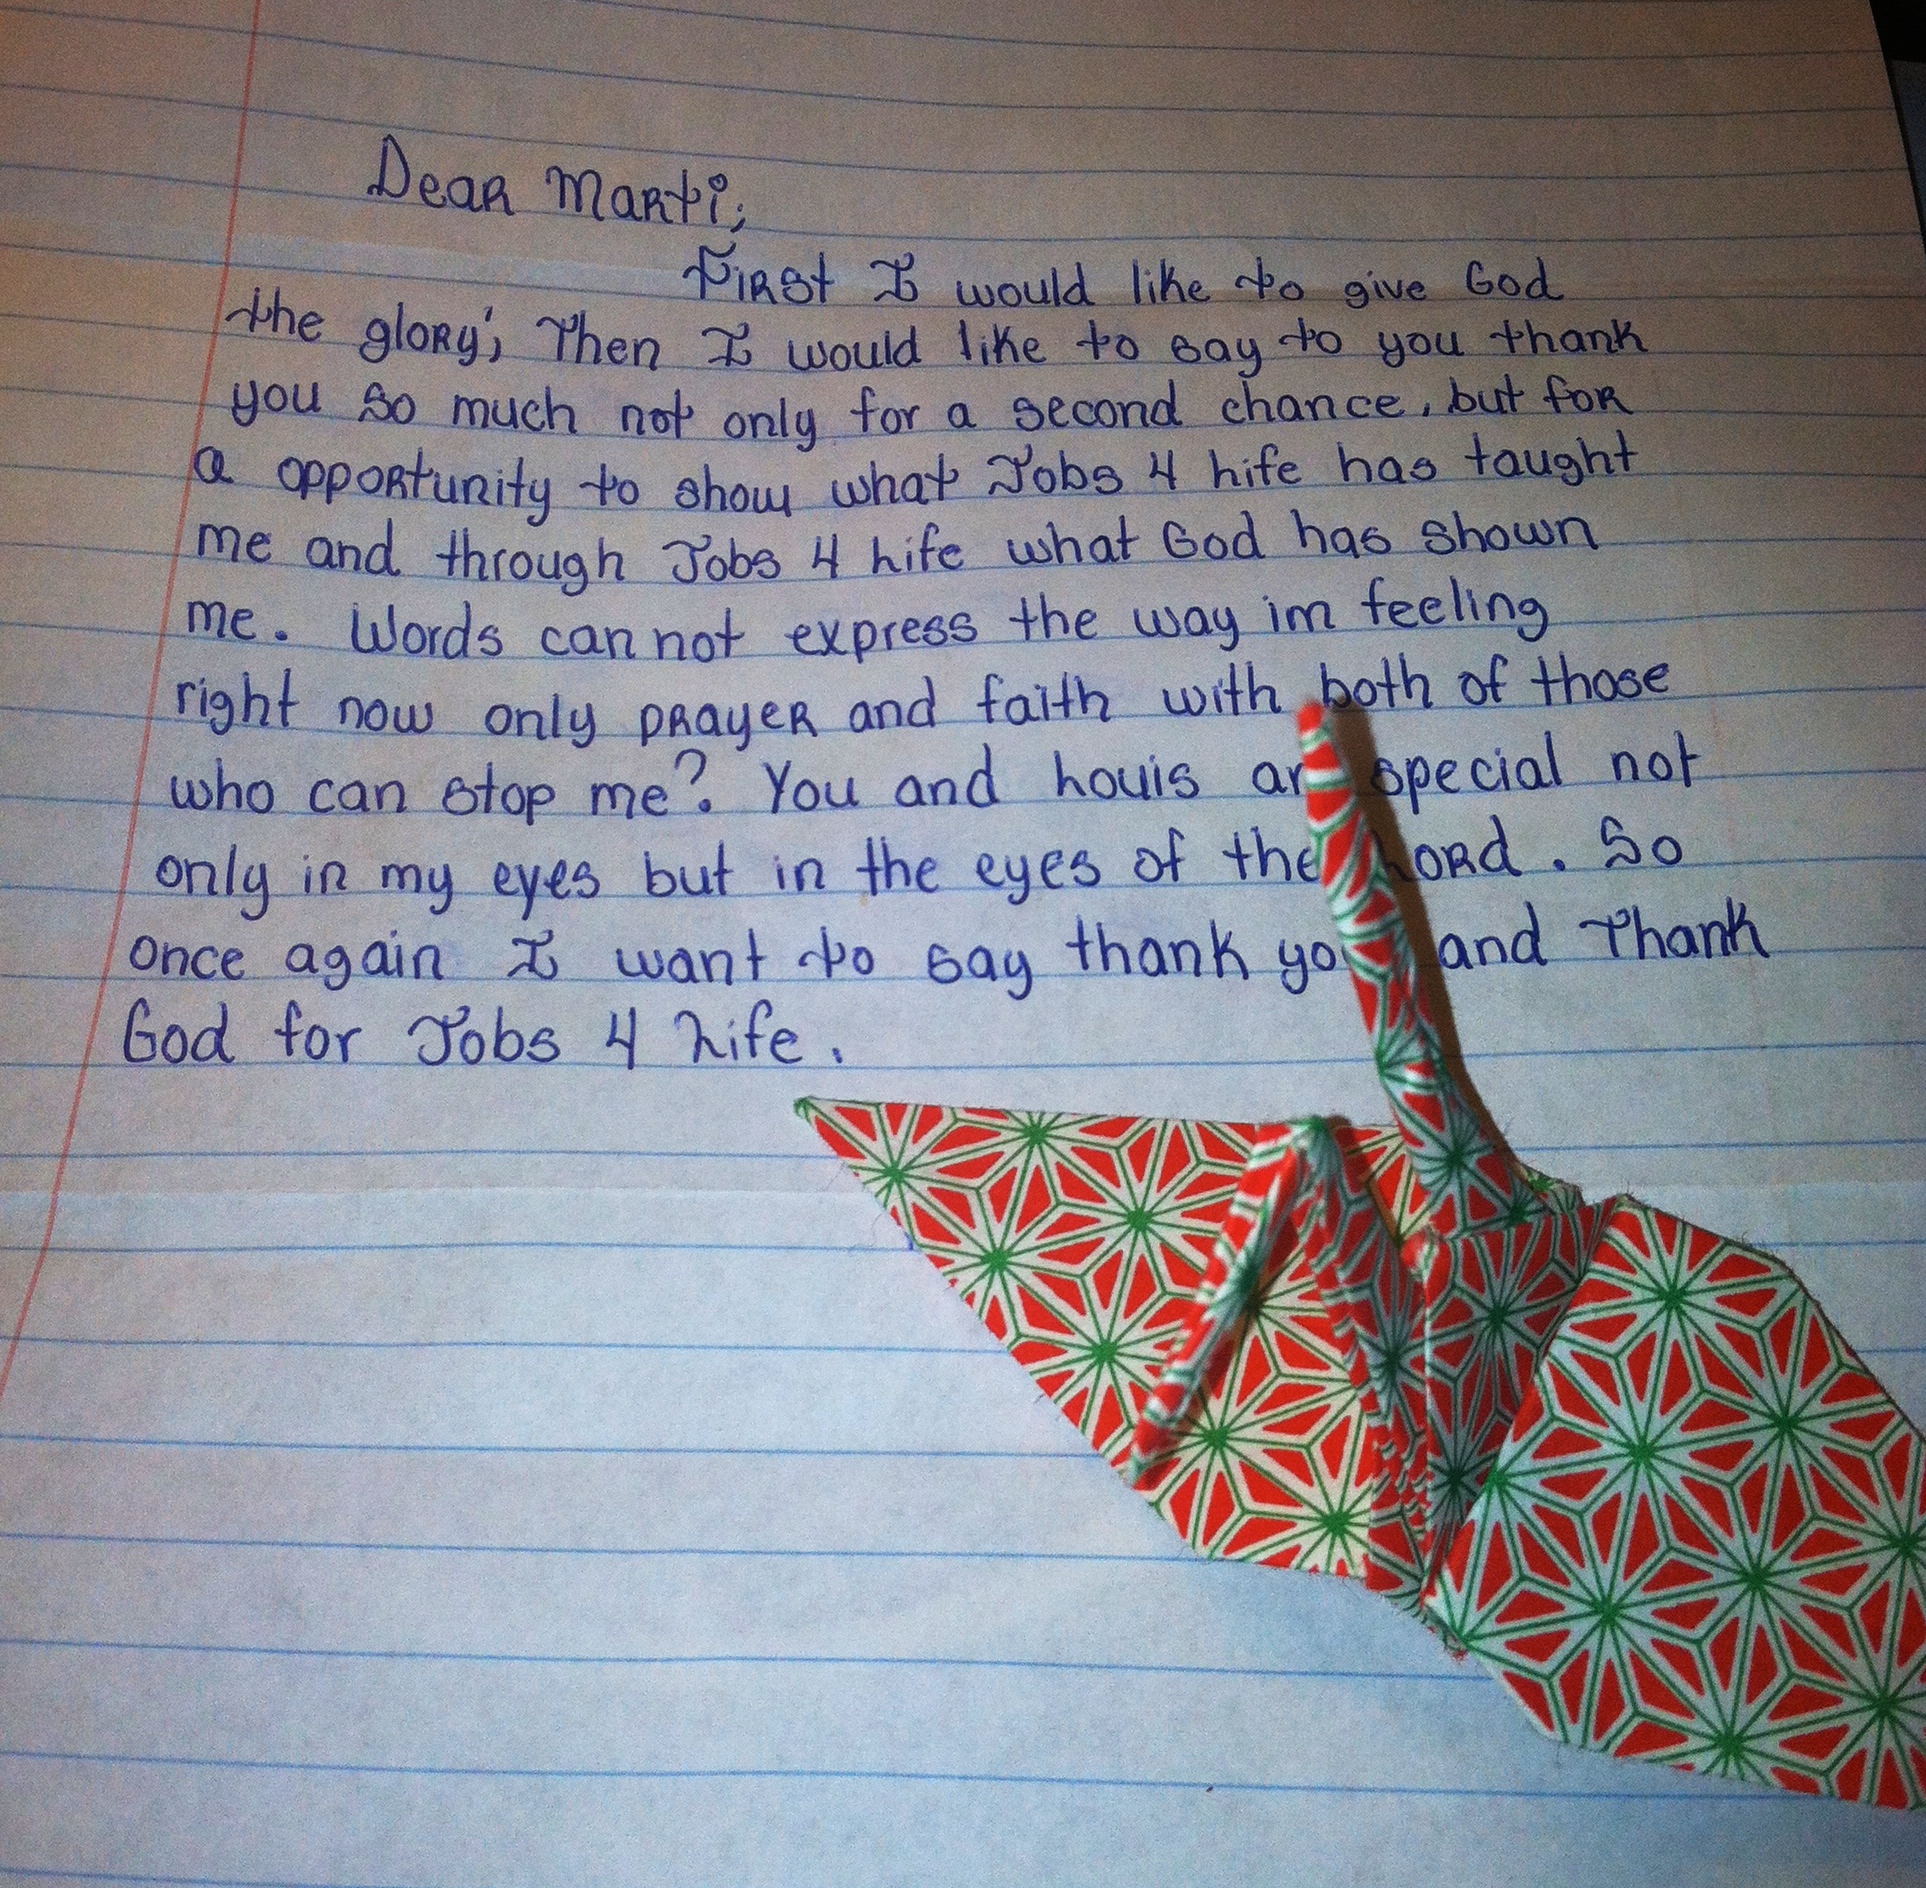 Dear Marti,
First I would like to give God
the glory; Then I would like to say to you thank
you so much not only for a second chance, but for
a opportunity to show what Jobs 4 Life has taught
me and through Jobs 4 Life what God has shown
me. Words can not express the way im feeling
right now only prayer and faith with both of those
who can stop me? You and Louis ar special not
only in my eyes but in the eyes of the Lord. So
once again I want to say thank you and Thank
God for Jobs 4 Life.